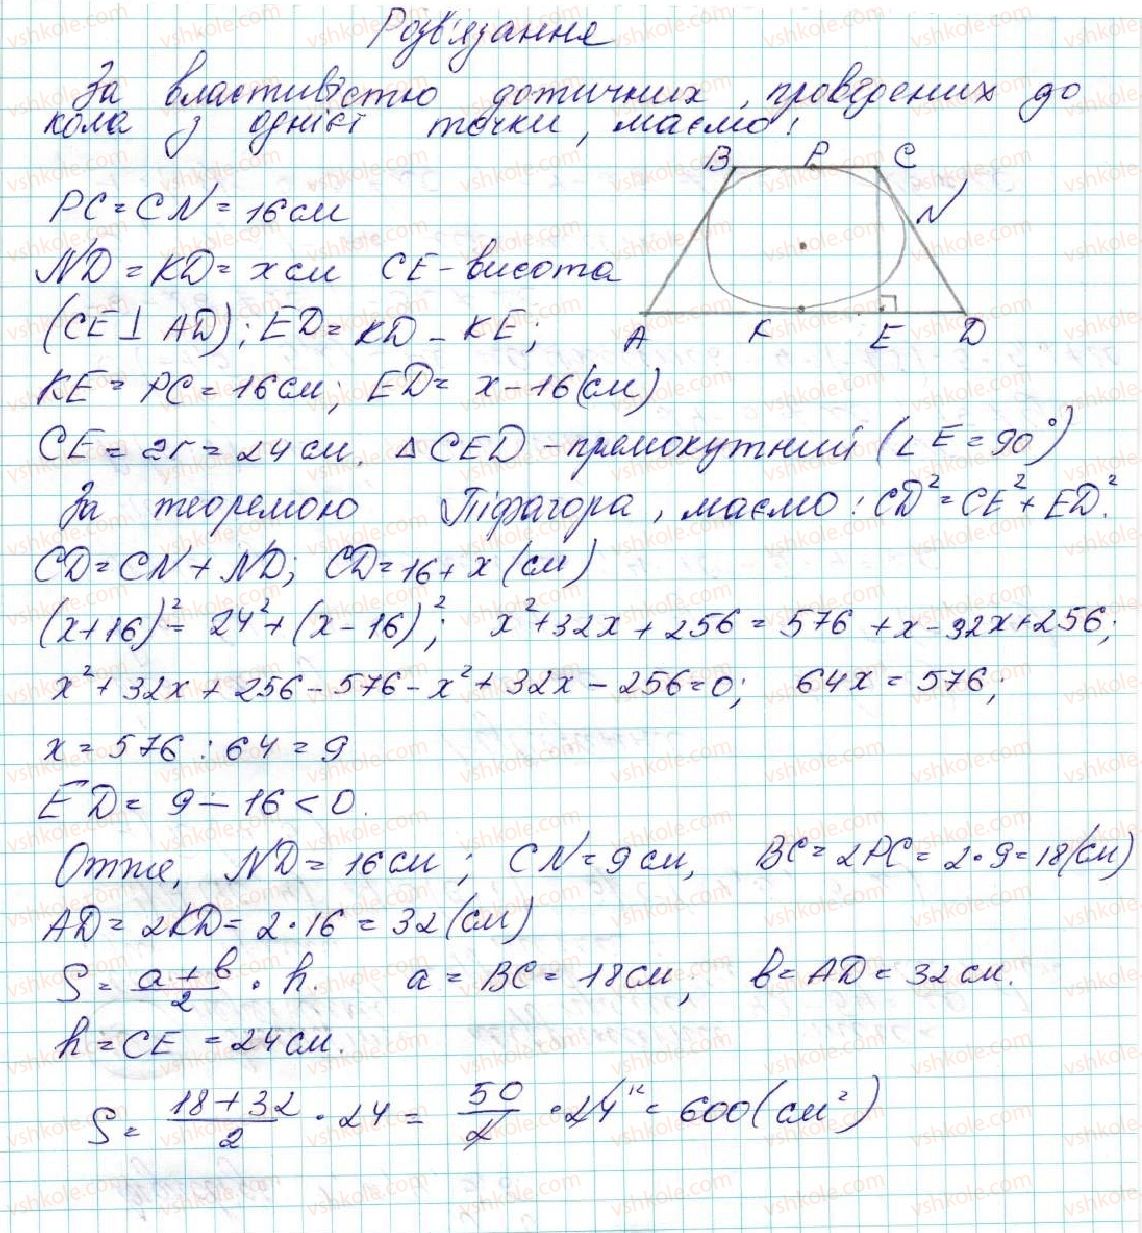 Розв'язання
За властивістю дотичних, проведених до
кола з однієї точки, маємо:
B P C
PC = CN = 16 см
N
ND = KD = x см CE - висота
(CE ⊥ AD); ED = KD - KE;
A K E D
KE = PC = 16 см; ED = x - 16 (см)
CE = 2r = 24 см. △ CED - прямокутний (∠E = 90°)
За теоремою Піфагора, маємо: CD² = CE² + ED².
CD = CN + ND; CD = 16 + x (см)
(x+16)² = 24² + (x-16)²; x² + 32x + 256 = 576 + x - 32x + 256;
x² + 32x + 256 - 576 - x² + 32x - 256 = 0; 64x = 576;
x = 576 : 64 = 9
ED = 9 - 16 < 0.
Отже, ND = 16 см; CN = 9 см, BC = 2PC = 2·9 = 18 (см)
AD = 2KD = 2·16 = 32 (см)
S = (a+b)/2 · h. a = BC = 18 см; b = AD = 32 см.
h = CE = 24 см.
S = (18+32)/2 · 24 = 50/2 · 24 12 = 600 (см²)
vshkole.com